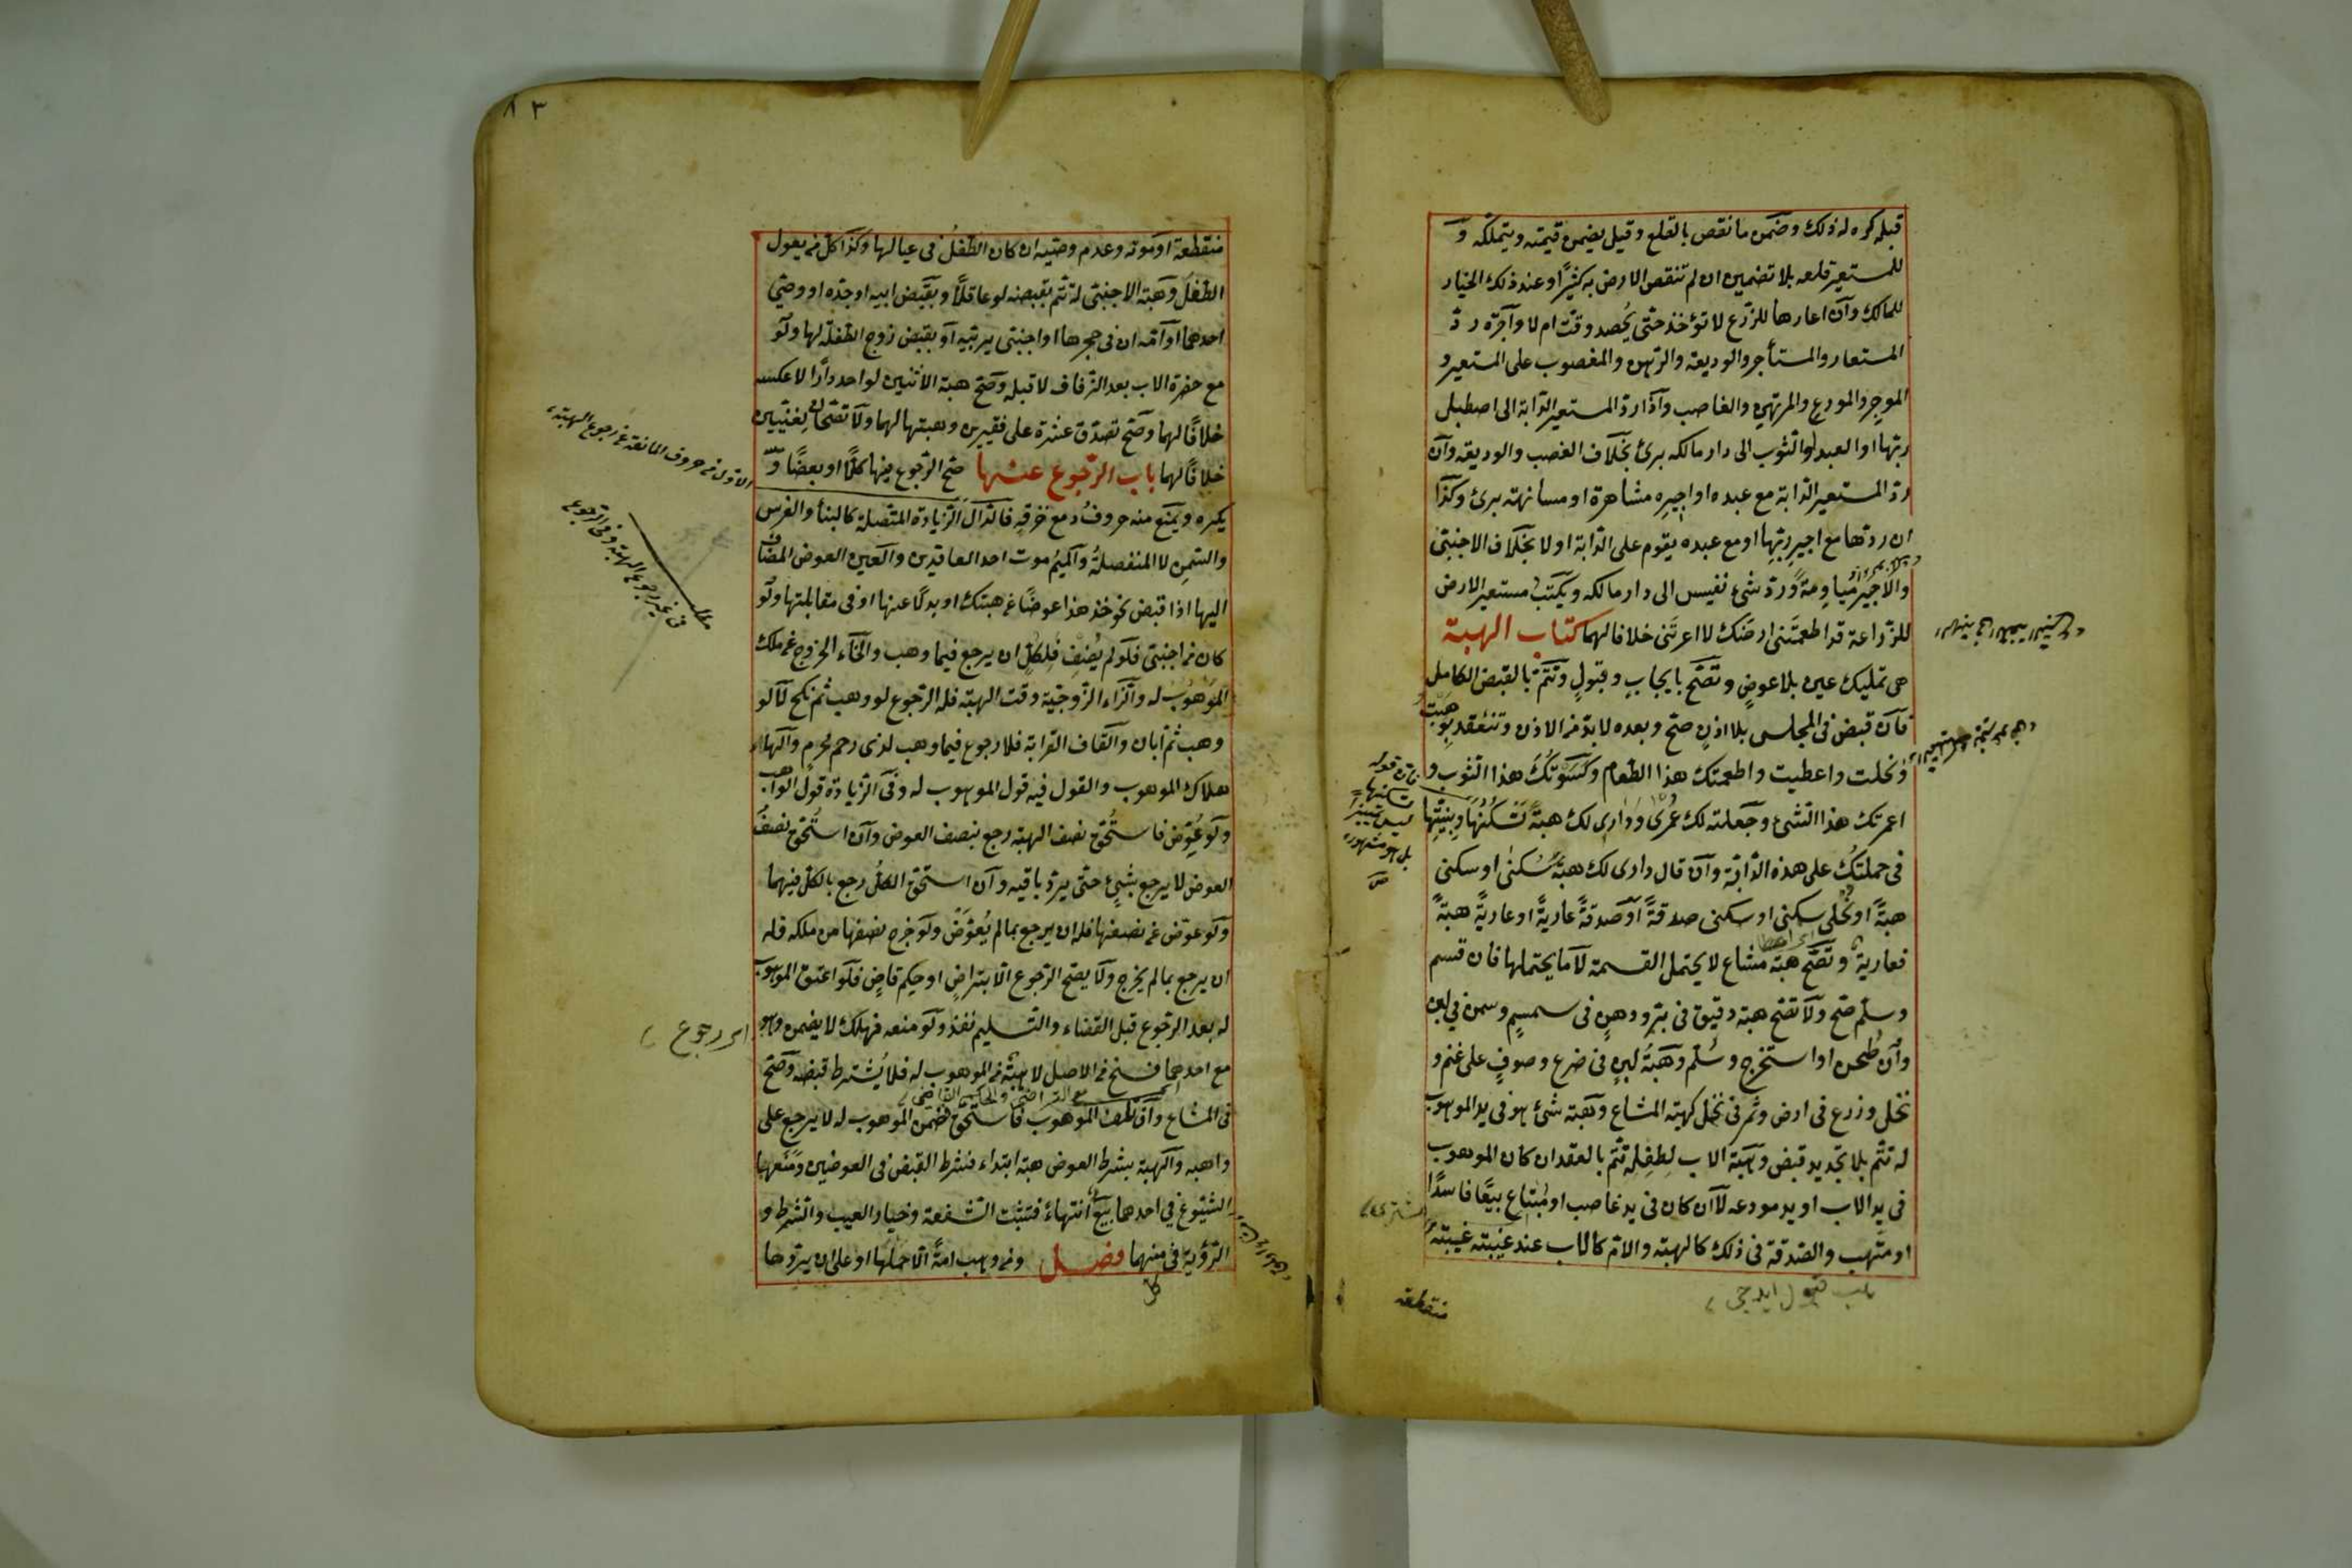 قبله كره له ذلك وضمن ما نقص بالقلع وقيل يضمن قيمته ويتملكه و
للمستعير قلعه بلا تضمين ان لم تنقص الارض به كثيرًا وعند ذلك الخيار
للمالك وان اعارها للزرع لا تؤخذ حتى يُحصد وقّت ام لا واجرة ردّ
المستعار والمستأجر والوديعة والرهن والمغصوب على المستعير و
الموجر والمودع والمرتهن والغاصب واذا ردّ المستعير الدابة الى اصطبل
ربّها او العبد او الثوب الى دار مالكه برئ بخلاف الغصب والوديعة وان
ردّ المستعير الدابة مع عبده او اجيره مشاهرة او مسانهة برئ وكذا
ان ردّها مع اجير ربّها او مع عبده يقوم على الدابة او لا بخلاف الاجنبي
والاجير مياومةً وردّ شئ نفيس الى دار مالكه ويكتب مستعير الارض
للزراعة قد اطعمتني ارضك لا اعرتني خلافا لهما كتاب الهبة
هي تمليك عين بلا عوضٍ وتصحّ بايجابٍ وقبولٍ وتتمّ بالقبض الكامل
فان قبض في المجلس بلا اذنٍ صحّ وبعده لا بدّ من الاذن وتنعقد بوهبت
ونحلت واعطيت واطعمتك هذا الطعام وكسوتك هذا الثوب و
اعمرتك هذا الشئ وجعلته لك عمرى وداري لك هبةً تسكنها وبنيّتها
في حملتك على هذه الدابّة وان قال داري لك هبةً سكنى او سكنى
هبةً او نُحلى سكنى او سكنى صدقةً او صدقةً عاريةً او عاريةً هبةً
فعارية وتصحّ هبة مشاع لا يحتمل القسمة لا ما يحتملها فان قسم
وسلّم صحّ ولا تصحّ هبة دقيق في بُرّ ودهنٍ في سمسمٍ وسمن في لبن
وان طُحن او استخرج وسُلّم وهبة لبنٍ في ضرع وصوفٍ على غنم و
نخل وزرع في ارض وتمر في نخل كهبة المشاع وهبة شئ هو في يد الموهوب
له تتمّ بلا تجديد قبض وهبة الاب لطفله تتمّ بالعقد ان كان الموهوب
في يد الاب او يد مودعه لا ان كان في يد غاصب او مبتاع بيعًا فاسدًا
او متّهب والصدقة في ذلك كالهبة والامّ كالاب عند غيبته غيبةً
منقطعة
بيان قوله
تسكنها
ليس تفسيرا
بل هو مشهورة
٨٣
منقطعة او موته وعدم وصيه ان كان الطفلُ في عيالها وكذا كلّ من يعول
الطفلَ وهبة الاجنبي له تتمّ بقبضه لو عاقلًا وبقبض ابيه او جدّه او وصيّ
احدهما او امّه ان في حجرها او اجنبي يربّيه او بقبض زوج الطفلة لها ولو
مع حضرة الاب بعد الزفاف لا قبله وصحّ هبة الاثنين لواحد دارًا لا عكسه
خلافًا لهما وصحّ تصدّق عشرة على فقيرين وهبتها لهما ولا تصحّان لغنيّين
خلافًا لهما باب الرجوع عنها صحّ الرجوع فيها كلًّا او بعضًا و
يكره ويمنع منه حروف دمع خزقه فالدال الزيادة المتصلة كالبناء والغرس
والسمن لا المنفصلةُ والميمُ موت احد العاقدين والعين العوض المضاف
اليها اذا قبض نحو خذ هذا عوضًا عن هبتك او بدلًا عنها او في مقابلتها ولو
كان من اجنبي فلو لم يُضِف فلكلٍّ ان يرجع فيما وهب والخاء الخروج عن ملك
الموهوب له والزاء الزوجيّة وقت الهبة فله الرجوع لو وهب ثم نكح لا لو
وهب ثم ابان والقاف القرابة فلا رجوع فيما وهب لذي رحم محرمٍ والهاء
هلاك الموهوب والقول فيه قول الموهوب له وفي الزيادة قول الواهب
ولو عُوّض فاستُحق نصف الهبة رجع بنصف العوض وان استُحق نصف
العوض لا يرجع بشئٍ حتّى يردّ باقيه وان استحق الكلُّ رجع بالكلّ فيهما
ولو عوّض عن نصفها فله ان يرجع بما لم يُعوَّض ولو خرج نصفها من ملكه فله
ان يرجع بما لم يخرج ولا يصحّ الرجوع الّا بتراضٍ او حكم قاضٍ فلو اعتق الموهوب
له بعد الرجوع قبل القضاء والتسليم نفذ ولو منعه فهلك لا يضمن وهو
مع احدهما فسخ من الاصل لا هبة من الموهوب له فلا يُشترط قبضه وصحّ
في المشاع وان تلف الموهوب فاستحق فضمن الموهوب له لا يرجع على
واهبه والهبة بشرط العوض هبة ابتداء فشرط القبض في العوضين ومنعها
الشيوع في احدهما بيعٌ انتهاءً فتثبت الشفعة وخيار العيب والشرط و
الرؤية في منهما فصل ومن وهب امةً الّا حملها او على ان يردّها
كل
الاول من حروف المانعة عن رجوع الهبة
مطلب
اي رجوع